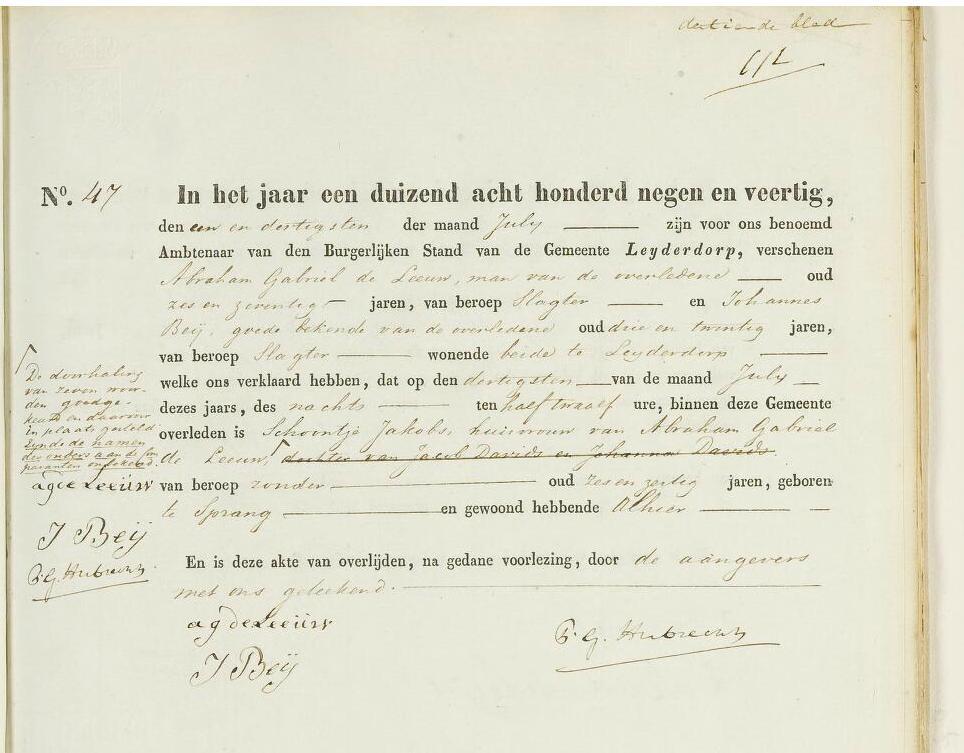 dertiende blad
No. 47
In het jaar een duizend acht honderd negen en veertig,
den een en dertigsten der maand July zijn voor ons benoemd
Ambtenaar van den Burgerlijken Stand van de Gemeente Leyderdorp, verschenen
Abraham Gabriel de Leeuw, man van de overledene oud
zes en zeventig jaren, van beroep Slagter en Johannes
Beij, goede bekende van de overledene oud drie en twintig jaren,
van beroep Slagter wonende beide te Leyderdorp
welke ons verklaard hebben, dat op den dertigsten van de maand July
dezes jaars, des nachts ten half twaalf ure, binnen deze Gemeente
overleden is Schoontje Jakobs, huisvrouw van Abraham Gabriel
de Leeuw, dochter van Jacob Davids en Johanna Davids
van beroep zonder oud zes en zestig jaren, geboren
te Sprang en gewoond hebbende Alhier
En is deze akte van overlijden, na gedane voorlezing, door de aangevers
met ons geteekend.
a g de Leeuw
J Beij
P. G. Hubrecht
De doorhaling
van zeven woor-
den goedge-
keurd en daarvoor
in plaats gesteld
Zijnde de namen
der onders aan de com
paranten onbekend.
a g de Leeuw
J Beij
P. G. Hubrecht